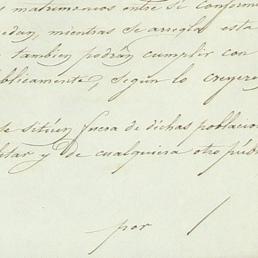 s matrimonios entre sí conform
edan, mientras se arregla esta
tambien podrán cumplir con
blicamente, según lo creyere
te sitúen fuera de dichas poblacio
litar y de cualquiera otro públ
por